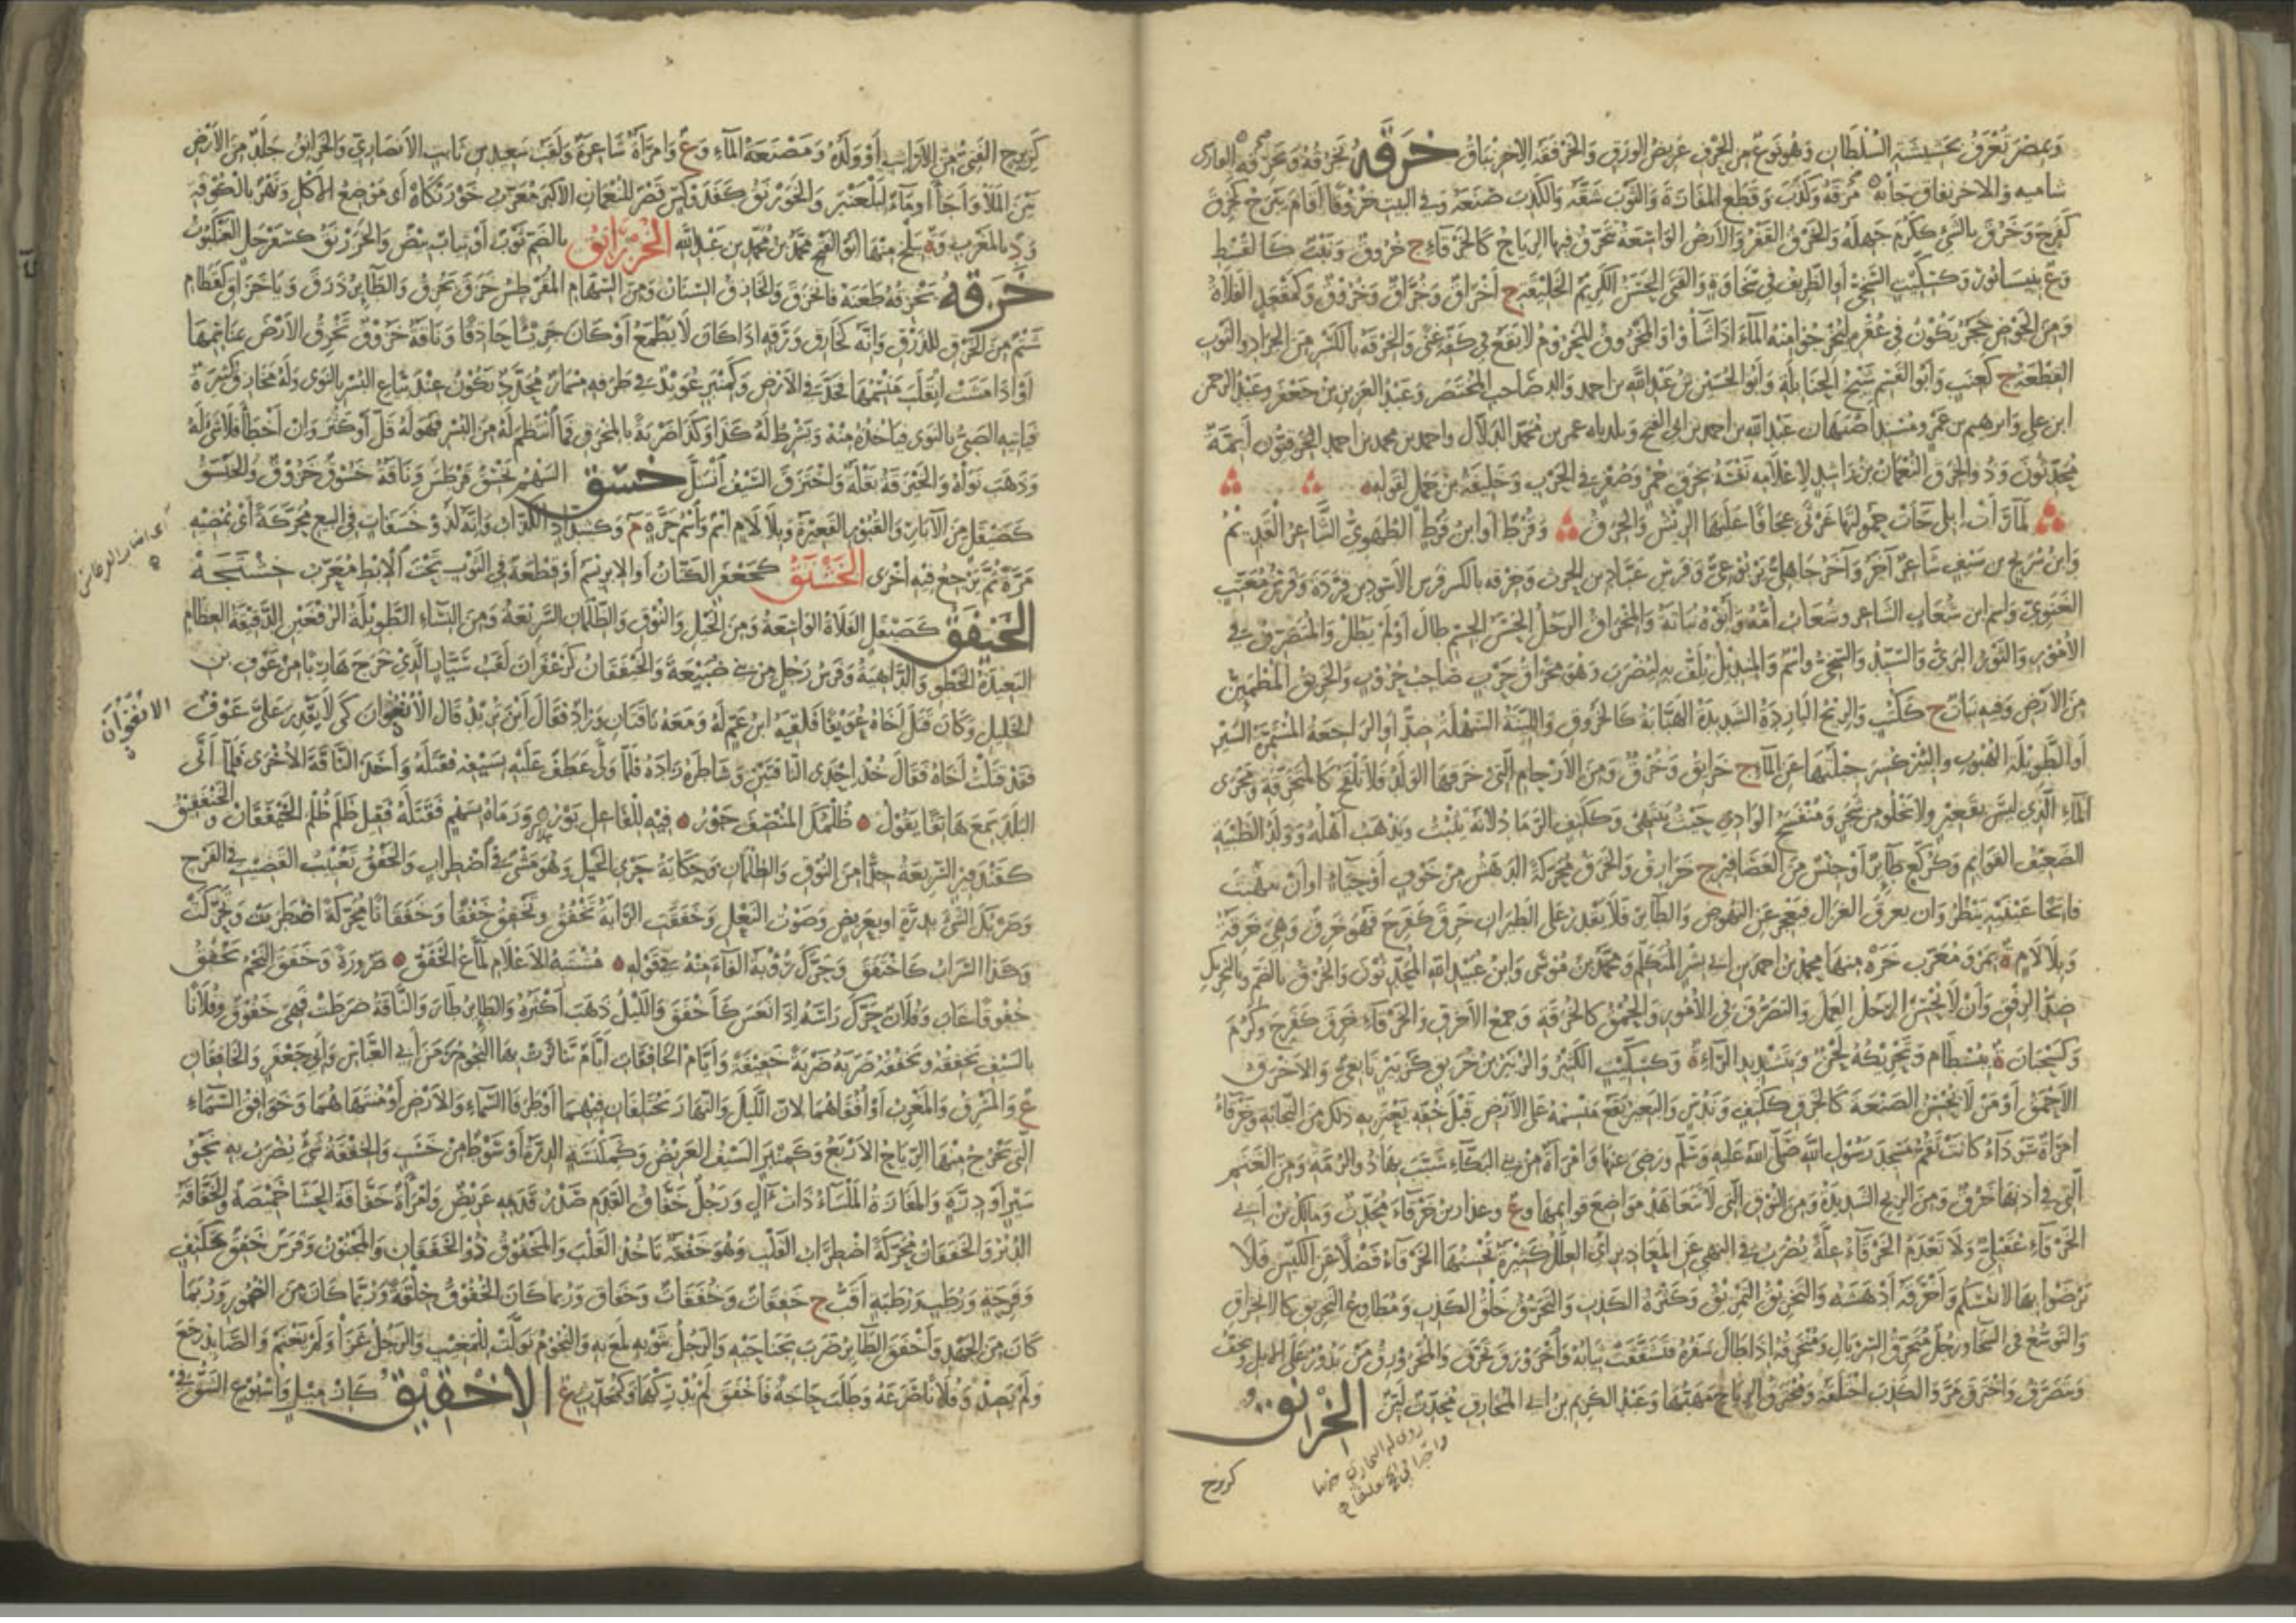 وَبمِصْرَ تُعْرَفُ بحَشِيشَةِ السُّلْطَانِ وَهُوَ نَوْعٌ مِنَ الحُرْفِ عَرِيضُ الوَرَقِ وَالخَرْفَقَةُ الاِخْرِنْبَاقُ خَرَقَهُ يَخْرُقُهُ وَيَخْرِقُهُ
مَزَّقَهُ وَكَذَبَ وَقَطَعَ المَفَازَةَ وَالثَّوْبَ شَقَّهُ وَالكَذِبَ صَنَعَهُ وَفي البَيْتِ خُرُوقًا أَقَامَ فَلَمْ يَبْرَحْ كَخَرِقَ
كَفَرِحَ وَخَرُقَ بالشَّيْ كَكَرُمَ جَهِلَهُ وَالخَرْقُ القَفْرُ وَالأَرْضُ الوَاسِعَةُ تَتَخَرَّقُ فيهَا الرِّيَاحُ كَالخَرْقَاءِ ج خُرُوقٌ وَنَبْتٌ كَالقُسْطِ
وَع بنَيْسَابُورَ وَكَسِكِّيتٍ السَّخِيُّ أَوِ الظَّرِيفُ في سَخَاوَةٍ وَالفَتَى الحَسَنُ الكَرِيمُ الخَلِيقَةِ ج أَخْرَاقٌ وَخُرَّاقٌ وَخُرُوقٌ وَكَمَقْعَدٍ الفَلَاةُ
وَمِنَ الحَوْضِ حَجَرٌ يَكُونُ في عُقْرِهِ لِيُخْرِجُوا مِنْهُ المَاءَ اِذَا شَاؤُا وَالمَخْرُوقُ المَحْرُومُ لَا يَقَعُ في كَفِّهِ غِنًى وَالخِرْقَةُ بالكَسْرِ مِنَ الجَرَادِ وَالثَّوْبِ
القِطْعَةُ ج كَعِنَبٍ وَأَبُو القَسِمِ شَيْخُ الحَنَابِلَةِ وَأَبُو الحُسَيْنِ بْنُ عَبْدِ اللهِ بن احمد وَالِدُ صَاحِبِ المُخْتَصَرِ وَعَبْدُ العَزِيزِ بْنُ جَعْفَرٍ وَعَبْدُ الرحمن
ابن علي وَابرهيم بن عَمْرٍو وَمُسْنِدُ أَصْبَهَانَ عَبْدُ اللهِ بن احمد بن ابي الفتح وَبَلَدِيَّاهُ عمر بن مُحَمَّدٍ الدَّلَّالُ واحمد بن محمد بن احمد الخِرَقِيُّونَ أَئِمَّةٌ
مُحَدِّثُونَ وَذُو الخِرَقِ النُّعْمَانُ بْنُ رَاشِدٍ لِاعْلَامِهِ نَفْسَهُ بخِرَقٍ حُمْرٍ وَصُفْرٍ في الحَرْبِ وَخَلِيفَةُ بْنُ حَمَلٍ لِقَوْلِهِ
لَمَّا رَأَتْ إِبِلِي جَاءَتْ حَمُولَتُهَا غَرْثَى عِجَافًا عَلَيْهَا الرِّيشُ وَالخِرَقُ وَقُرْطٌ أَوِ ابْنُ قُرْطٍ الطُّهَوِيُّ الشَّاعِرُ القَدِيمُ
وَابْنُ شُرَيْحِ بن سَيْفٍ شَاعِرٌ آخَرُ وَآخَرُ جَاهِلِيٌّ يَرْبُوعِيٌّ وَفَرَسُ عَبَّادِ بن الحرث وَخِرْقَه بالكسر فَرَسُ الأَسْوَدِ بن قِرْدَةَ وَفَرَسُ مُعَتِّبٍ
الغَنَوِيِّ وَاسم ابن شُعَاث الشاعر وَشُعَاثُ أُمُّهُ وَأَبُوهُ نُبَاتَةُ وَالمِخْرَاقُ الرَّجُلُ الحَسَنُ الجِسْمِ طَالَ أَوْ لَمْ يَطُلْ وَالمُتَصَرِّفُ في
الأُمُورِ وَالثَّوْرُ البَرِّيُّ وَالسَّيِّدُ وَالسَّخِيُّ وَاسْمٌ وَالمِنْدِيلُ يُلَفُّ بِهِ لِيُضْرَبَ وَهُوَ مِخْرَاقُ حَرْبٍ صَاحِبُ حُرُوبٍ وَالخَرِيقُ المُطْمَئِنُّ
مِنَ الأَرْضِ وَفِيهِ نَبَاتٌ ج كَكُتُبٍ وَالرِّيحُ البَارِدَةُ الشَّدِيدَةُ الهَبَّابَةُ كَالخَرُوقِ وَاللَّيِّنَةُ السَّهْلَةُ ضِدٌّ أَوِ الرَّاجِعَةُ المُسْتَمِرَّةُ السَّيْرِ
أَوِ الطَّوِيلَةُ الهُبُوبِ وَالبِئْرُ كُسِرَ جَبْلَتُهَا عَنِ المَاءِ ج خَرَايِقُ وَخُرُقٌ وَمِنَ الأَرْحَامِ الَّتِي خَرَقَهَا الوَلَدُ فَلَا تَلْقَحُ كَالمُتَخَرِّقَةِ وَمَجْرَى
المَاءِ الَّذِي لَيْسَ بِقَعِيرٍ وَلَا يَخْلُو مِنْ شَجَرٍ وَمُنْفَسَحُ الوَادِي حَيْثُ يَنْتَهِي وَكَكَتِفٍ الرَّمَادُ لِأَنَّهُ يَثْبُتُ وَيَذْهَبُ أَهْلُهُ وَوَلَدُ الظَّبْيَةِ
الضَّعِيفُ القَوَايِمِ وَكَرُكَّعٍ طَائِرٌ أَوْ جِنْسٌ مِنَ العَصَافِيرِ ج خَرَارِقُ وَالخَرَقُ مُحَرَّكَةً الدَّهَشُ مِنْ خَوْفٍ أَوْ حَيَاءٍ أَوْ أَنْ يَبْهَتَ
فَاتِحًا عَيْنَيْهِ يَنْظُرُ وَأَنْ يَفْرَقَ الغَزَالُ فَيَعْجِزَ عَنِ النُّهُوضِ وَالطَّائِرُ فَلَا يَقْدِرُ عَلَى الطَّيَرَانِ خَرِقَ كَفَرِحَ فَهُوَ خَرِقٌ وَهِيَ خَرِقَةٌ
وَبِلَا لَامٍ ة بِمَرْوَ مُعَرَّبُ خَرَهْ مِنْهَا مُحَمَّدُ بْنُ احمد بن ابي بِشْرٍ المُتَكَلِّمُ وَمُحَمَّدُ بْنُ مُوسَى وَابْنُ عُبَيْدِ اللهِ المُحَدِّثُونَ وَالخُرْقُ بالضَّمِّ وَبالتَّحْرِيكِ
ضِدُّ الرِّفْقِ وَأَنْ لَا يُحْسِنَ الرَّجُلُ العَمَلَ وَالتَّصَرُّفَ في الأُمُورِ وَالحُمْقُ كَالخُرْقَةِ وَجَمْعُ الأَخْرَقِ وَالخَرْقَاءِ خَرِقَ كَفَرِحَ وَكَرُمَ
وَكَسَحْبَانَ ة بِبَسْطَامَ وَتَحْرِيكُهُ لَحْنٌ وَبِتَشْدِيدِ الرَّاءِ ة وَكَسِكِّيتٍ الكَثِيرُ وَالزُّبَيْرُ بْنُ خُرَيْقٍ كَزُبَيْرٍ تَابِعِيٌّ وَالأَخْرَقُ
الأَحْمَقُ أَوْ مَنْ لَا يُحْسِنُ الصَّنْعَةَ كَالخَرِقِ كَكَتِفٍ وَنَدُسٍ وَالبَعِيرُ يَقَعُ مَنْسِمُهُ عَلَى الأَرْضِ قَبْلَ خُفِّهِ يَعْتَرِيهِ ذلك مِنَ النَّجَابَةِ وَخَرْقَاءُ
امْرَأَةٌ سَوْدَاءُ كَانَتْ تَقُمُّ مَسْجِدَ رَسُولِ اللهِ صَلَّى اللهُ عَلَيْهِ وَسَلَّمَ وَرَضِيَ عَنْهَا وَامْرَأَةٌ مِنْ بَنِي البَكَّاءِ شَبَّبَ بِهَا ذُو الرُّمَّةِ وَمِنَ الغَنَمِ
الَّتِي في أُذُنِهَا خَرْقٌ وَمِنَ الرِّيحِ الشَّدِيدَةُ وَمِنَ النُّوقِ الَّتِي لَا تَتَعَاهَدُ مَوَاضِعَ قَوَايِمِهَا وَع وَعذَار بن خَرْقَاءَ مُحَدِّثٌ وَمَالِكُ بْنُ أَبِي
الخَرْقَاءِ عُقَيْلِيٌّ وَلَا تَعْدَمُ الخَرْقَاءُ عِلَّةً يُضْرَبُ في النَّهْيِ عَنِ المَعَاذِيرِ أَي العِلَلُ كَثِيرَةٌ تُحْسِنُهَا الخَرْقَاءُ فَضْلًا عَنِ الكَيِّسِ فَلَا
تَرْضَوْا بِهَا لِأَنْفُسِكُمْ وَأَخْرَقَهُ أَدْهَشَهُ وَالتَّخْرِيقُ التَّمْزِيقُ وَكَثْرَةُ الكَذِبِ وَالتَّخَرُّقُ خَلْقُ الكَذِبِ وَمُطَاوِعُ التَّخْرِيقِ كَالِانْخِرَاقِ
وَالتَّوَسُّعُ في السَّخَاءِ وَرَجُلٌ مُتَخَرِّقُ السِّرْبَالِ وَمُنْخَرِقُهُ إِذَا طَالَ سَفَرُهُ فَتَشَقَّقَتْ ثِيَابُهُ وَاخْرَوْرَقَ تَخَرَّقَ وَالمُخْرَوْرِقُ مَنْ يَدُورُ عَلَى الإِبِلِ وَيَخِفُّ
وَيَتَصَرَّفُ وَاخْتَرَقَ مَرَّ وَالكَذِبَ اخْتَلَقَهُ وَمُخْتَرَقُ الرِّيَاحِ مَهَبُّهَا وَعَبْدُ الكَرِيمِ بْنُ أَبِي المُخَارِقِ مُحَدِّثٌ لَيِّنٌ الخِرْنِقُ
كَزِبْرِجٍ الفَتِيُّ مِنَ الأَرَانِبِ أَوْ وَلَدُهُ وَمَصْنَعَةُ المَاءِ وَع وَامْرَأَةٌ شَاعِرَةٌ وَلَقَبُ سَعِيدِ بن ثَابِتٍ الأَنْصَارِيِّ وَالخَرَانِقُ جَلَدٌ مِنَ الأَرْضِ
بَيْنَ المَلَا وَأَجَأٍ أَوْ مَاءٌ لِبَلْعَنْبَرِ وَالخَوَرْنَقُ كَفَدَوْكَسٍ قَصْرٌ لِلنُّعْمَانِ الأَكْبَرِ مُعَرَّبُ خَوُرَنْكَاه أَي مَوْضِعُ الأَكْلِ وَنَهْرٌ بالكُوفَةِ
وَد بالمَغْرِبِ وَة بِبَلْخَ مِنْهَا أَبُو الفَتْحِ مُحَمَّدُ بْنُ مُحَمَّدِ بن عَبْدِ اللهِ الخُرْزَانِقُ بالضَّمِّ ثَوْبٌ أَوْ ثِيَابٌ بِيضٌ وَالخَزَرْنَقُ كَسَفَرْجَلٍ العَنْكَبُوتُ
خَزَقَهُ يَخْزِقُهُ طَعَنَهُ فَانْخَزَقَ وَالخَازِقُ السِّنَانُ وَمِنَ السِّهَامِ المُقَرْطِسُ خَزَقَ يَخْزِقُ وَالطَّائِرُ ذَرَقَ وَيَا خَزَاقِ كَقَطَامِ
شَتْمٌ مِنَ الخَزْقِ لِلذَّرْقِ وَإِنَّهُ لَخَازِقُ وَرَقِهِ إِذَا كَانَ لَا يُطْمَعُ فيهِ أَوْ كَانَ جَرِيئًا حَاذِقًا وَنَاقَةٌ خَزُوقٌ تَخْزِقُ الأَرْضَ بِمَنَاسِمِهَا
أَوْ إِذَا مَشَتْ انْقَلَبَ مَنْسِمُهَا فَخَدَّ في الأَرْضِ وَكَمِنْبَرٍ عُوَيْدٌ في طَرَفِهِ مِسْمَارٌ مُحَدَّدٌ يَكُونُ عِنْدَ بَيَّاعِ البُسْرِ بالنَّوَى وَلَهُ مَخَازِقُ كَثِيرَةٌ
فَيَأْتِيهِ الصَّبِيُّ بالنَّوَى فَيَأْخُذُهُ مِنْهُ وَيَشْرُطُ لَهُ كَذَا وَكَذَا ضَرْبَةً بالمِخْزَقِ فَمَا انْتَظَمَ لَهُ مِنَ البُسْرِ فَهُوَ لَهُ قَلَّ أَوْ كَثُرَ وَإِنْ أَخْطَأَ فَلَا شَيْءَ لَهُ
وَذَهَبَ نَوَاهُ وَالخَيْزَقَةُ بَقْلَةٌ وَاخْتَزَقَ السَّيْفُ انْسَلَّ خَسَقَ السَّهْمُ يَخْسِقُ قَرْطَسَ وَنَاقَةٌ خَسُوقٌ خَزُوقٌ وَالخَيْسَقُ
كَصَيْقَلٍ مِنَ الآبَارِ وَالقُبُورِ القَعِيرَةُ وَبِلَا لَامٍ اسْمٌ وَاسْمُ حَرَّةٍ م وَكَشَدَّادٍ الكَذَّابُ وَإِنَّهُ لَذُو خَسَقَاتٍ في البَيْعِ مُحَرَّكَةً أَي يُمْضِيهِ
مَرَّةً ثُمَّ يَرْجِعُ فِيهِ أُخْرَى الخَشْتَقُ كَجَعْفَرٍ الكَتَّانُ أَوِ الإِبْرِيسَمُ أَوْ قِطْعَةٌ في الثَّوْبِ تَحْتَ الإِبْطِ مُعَرَّبُ خَشْتَجَهْ
الخَيْفَقُ كَصَيْقَلٍ الفَلَاةُ الوَاسِعَةُ وَمِنَ الخَيْلِ وَالنُّوقِ وَالظِّلْمَانِ السَّرِيعَةُ وَمِنَ النِّسَاءِ الطَّوِيلَةُ الرُّفْغَيْنِ الدَّقِيقَةُ العِظَامِ
البَعِيدَةُ الخَطْوِ وَالدَّاهِيَةُ وَفَرَسُ رَجُلٍ مِنْ بَنِي ضُبَيْعَةَ وَالخَيْفَقَانُ كَزَعْفَرَانٍ لَقَبُ سَيَّارٍ الَّذِي خَرَجَ هَارِبًا مِنْ عَوْفِ بن
الخَلِيلِ وَكَانَ قَتَلَ أَخَاهُ عُوَيْفًا فَلَقِيَهُ ابْنُ عَمٍّ لَهُ وَمَعَهُ نَاقَتَانِ وَزَادٌ فَقَالَ أَيْنَ تُرِيدُ قَالَ الأُنْقُوَانَ كَي لَا يَقْدِرَ عَلَيَّ عَوْفٌ
فَقَدْ قَتَلْتُ أَخَاهُ فَقَالَ خُذْ إِحْدَى النَّاقَتَيْنِ وَشَاطَرَهُ زَادَهُ فَلَمَّا وَلَّى عَطَفَ عَلَيْهِ بِسَيْفِهِ فَقَتَلَهُ وَأَخَذَ النَّاقَةَ الأُخْرَى فَلَمَّا أَتَى
البَلَدَ سَمِعَ هَاتِفًا يَقُولُ ظُلْمُكَ المُنْصِفَ جَوْرُ فِيهِ لِلْفَاعِلِ بَوْرُ وَرَمَاهُ بِسَهْمٍ فَقَتَلَهُ فَقِيلَ ظُلْمٌ ظُلْمُ الخَيْفَقَانِ وَالخَنْفَقِيقُ
كَقَنْدَفِيرٍ السَّرِيعَةُ جِدًّا مِنَ النُّوقِ وَالظِّلْمَانِ وَحِكَايَةُ جَرْيِ الخَيْلِ وَهُوَ مَشْيٌ في اضْطِرَابٍ وَالخَفْقُ تَغْيِيبُ القَضِيبِ في الفَرْجِ
وَضَرْبُكَ الشَّيْءَ بِدِرَّةٍ أَوْ بِعَرِيضٍ وَصَوْتُ النَّعْلِ وَخَفَقَتِ الرَّايَةُ تَخْفُقُ وَتَخْفِقُ خَفْقًا وَخَفَقَانًا مُحَرَّكَةً اضْطَرَبَتْ وَتَحَرَّكَتْ
وَكَذَا السَّرَابُ كَاخْتَفَقَ وَحَرَّكَ رُؤْبَةُ الفَاءَ مِنْهُ في قَوْلِهِ مُشْتَبِهِ الأَعْلَامِ لَمَّاعِ الخَفَقْ ضَرُورَةً وَخَفَقَ النَّجْمُ يَخْفُقُ
خُفُوقًا غَابَ وَفُلَانٌ حَرَّكَ رَأْسَهُ إِذَا نَعَسَ كَأَخْفَقَ وَاللَّيْلُ ذَهَبَ أَكْثَرُهُ وَالطَّائِرُ طَارَ وَالنَّاقَةُ ضَرَطَتْ فَهِيَ خَفُوقٌ وَفُلَانًا
بالسَّيْفِ يَخْفِقُهُ وَيَخْفُقُهُ ضَرَبَهُ ضَرْبَةً خَفِيفَةً وَأَيَّامُ الخَافِقَاتِ أَيَّامٌ تَنَاثَرَتْ بِهَا النُّجُومُ زَمَنَ أَبِي العَبَّاسِ وَأَبِي جَعْفَرٍ وَالخَافِقَانِ
ع وَالمَشْرِقُ وَالمَغْرِبُ أَوْ أُفُقَاهُمَا لِأَنَّ اللَّيْلَ وَالنَّهَارَ يَخْتَلِفَانِ فِيهِمَا أَوْ طَرَفَا السَّمَاءِ وَالأَرْضِ أَوْ مُنْتَهَاهُمَا وَخَوَافِقُ السَّمَاءِ
الَّتِي تَخْرُجُ مِنْهَا الرِّيَاحُ الأَرْبَعُ وَكَمِنْبَرٍ السَّيْفُ العَرِيضُ وَكَمِكْنَسَةٍ الدِّرَّةُ أَوْ سَوْطٌ مِنْ خَشَبٍ وَالخَفْقَةُ شَيْءٌ يُضْرَبُ بِهِ نَحْوُ
سَيْرٍ أَوْ دِرَّةٍ وَالمَفَازَةُ المَلْسَاءُ ذَاتُ آلٍ وَرَجُلٌ خَفَّاقُ القَدَمِ صَدْرُ قَدَمِهِ عَرِيضٌ وَامْرَأَةٌ خَفَّاقَةُ الحَشَا خَمِيصَةٌ وَالخَفَّاقَةُ
الدُّبُرُ وَالخَفَقَانُ مُحَرَّكَةً اضْطِرَابُ القَلْبِ وَهُوَ خَفْقَةٌ تَأْخُذُ القَلْبَ وَالمَخْفُوقُ ذُو الخَفَقَانِ وَالمَجْنُونُ وَفَرَسٌ خَفِقٌ كَكَتِفٍ
وَفَرِحَةٍ وَرُطَبٍ وَرُطَبَةٍ أَقَبُّ ج خَفِقَاتٌ وَخُفَقَاتٌ وَخِفَاقٌ وَرُبَّمَا كَانَ الخُفُوقُ خِلْقَةً وَرُبَّمَا كَانَ مِنَ الضُّمُورِ وَرُبَّمَا
كَانَ مِنَ الجَهْدِ وَأَخْفَقَ الطَّائِرُ ضَرَبَ بِجَنَاحَيْهِ وَالرَّجُلُ بِثَوْبِهِ لَمَعَ بِهِ وَالنُّجُومُ تَوَلَّتْ لِلْمَغِيبِ وَالرَّجُلُ غَزَا وَلَمْ يَغْنَمْ وَالصَّائِدُ رَجَعَ
وَلَمْ يَصِدْ وَفُلَانًا صَرَعَهُ وَطَلَبَ حَاجَةً فَأَخْفَقَ لَمْ يُدْرِكْهَا وَكَمُحَدِّثٍ ع الإِخْقِيقُ كَإِزْمِيلٍ وَأُسْبُوعٍ الشَّقُّ في